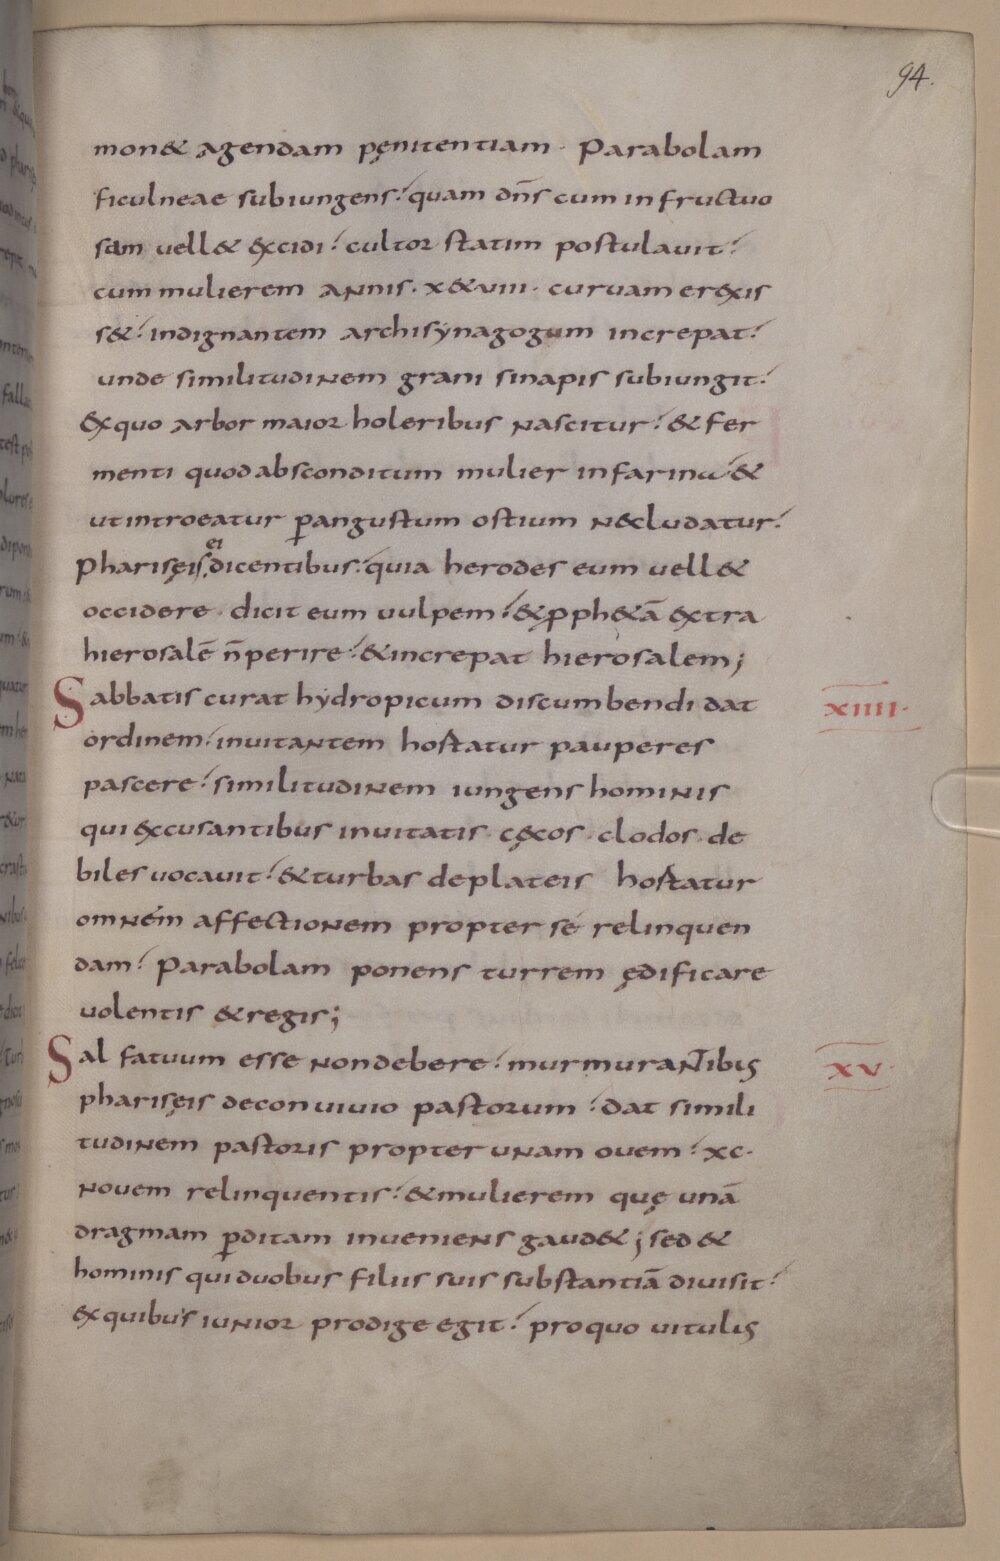 94.
mon& agendam pęnitentiam · Parabolam
ficulneae subiungens: quam dn̄s cum infructuo
sam uell& excidi: cultor statim postulauit:
cum mulierem annis · x&viii · curuam erexis
s&: indignantem archisynagogum increpat:
unde similitudinem grani sinapis subiungit:
Ex quo arbor maior holeribus nascitur: & fer
menti quod absconditum mulier in farina: &
ut introeatur p̲angustum ostium n&cludatur:
Pharisęis, ei dicentibus: quia herodes eum uell&
occidere · dicit eum uulpem: & p̲ph&ā extra
hierosalē n̄ perire: & increpat hierosalem;
Sabbatis curat hydropicum discumbendi dat
XIIII ·
ordinem: inuitantem hostatur pauperes
pascere: similitudinem iungens hominis
qui excusantibus inuitatis · cęcos · clodos · de
biles uocauit: & turbas deplateis hostatur
omném affectionem propter sé relinquen
dam: Parabolam ponens turrem ędificare
uolentis & regis;
Sal fatuum esse non debere: murmurantibus
XV ·
pharisęis de conuiuio pastorum: dat simili
tudinem pastoris propter unam ouem: xc ·
nouem relinquentis: & mulierem quę unā
dragmam p̲ditam inueniens gaud&; sed &
hominis qui duobus filiis suis substantiā diuisit:
ex quibus iunior prodige egit: pro quo uitulis